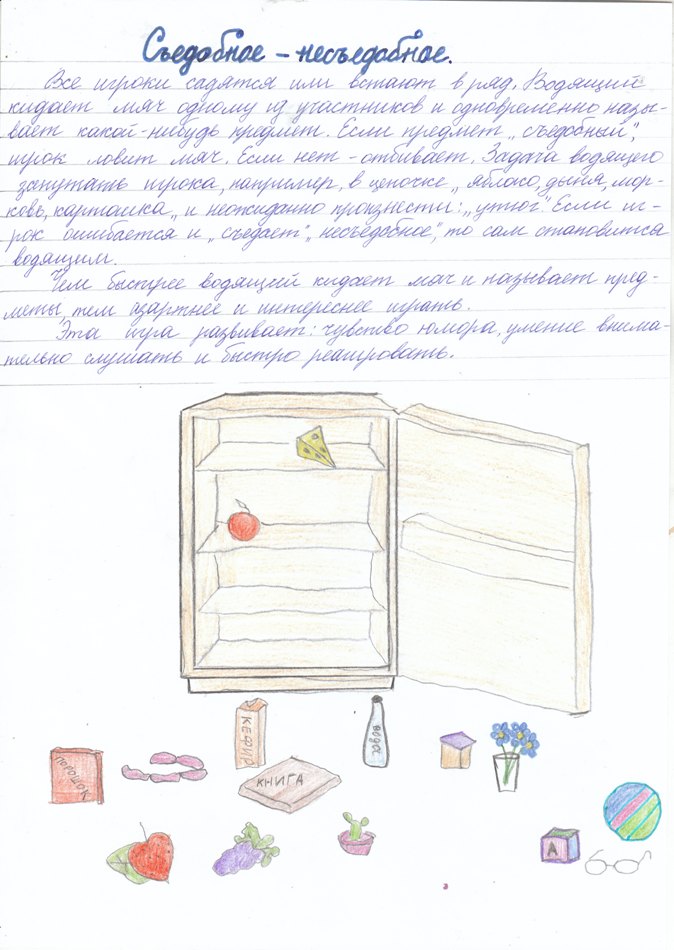 Съедобное - несъедобное.
Все игроки садятся или встают в ряд. Водящий
кидает мяч одному из участников и одновременно назы-
вает какой-нибудь предмет. Если предмет „съедобный",
игрок ловит мяч. Если нет - отбивает. Задача водящего
запутать игрока, например, в цепочке „яблоко, дыня, мор-
ковь, картошка„ и неожиданно произнести: „утюг". Если иг-
рок ошибается и „съедает" „несъедобное", то сам становится
водящим.
Чем быстрее водящий кидает мяч и называет пред-
меты, тем азартнее и интереснее играть.
Эта игра развивает: чувство юмора, умение внима-
тельно слушать и быстро реагировать.
КЕФИР
ВОДА
ПОРОШОК
КНИГА
А